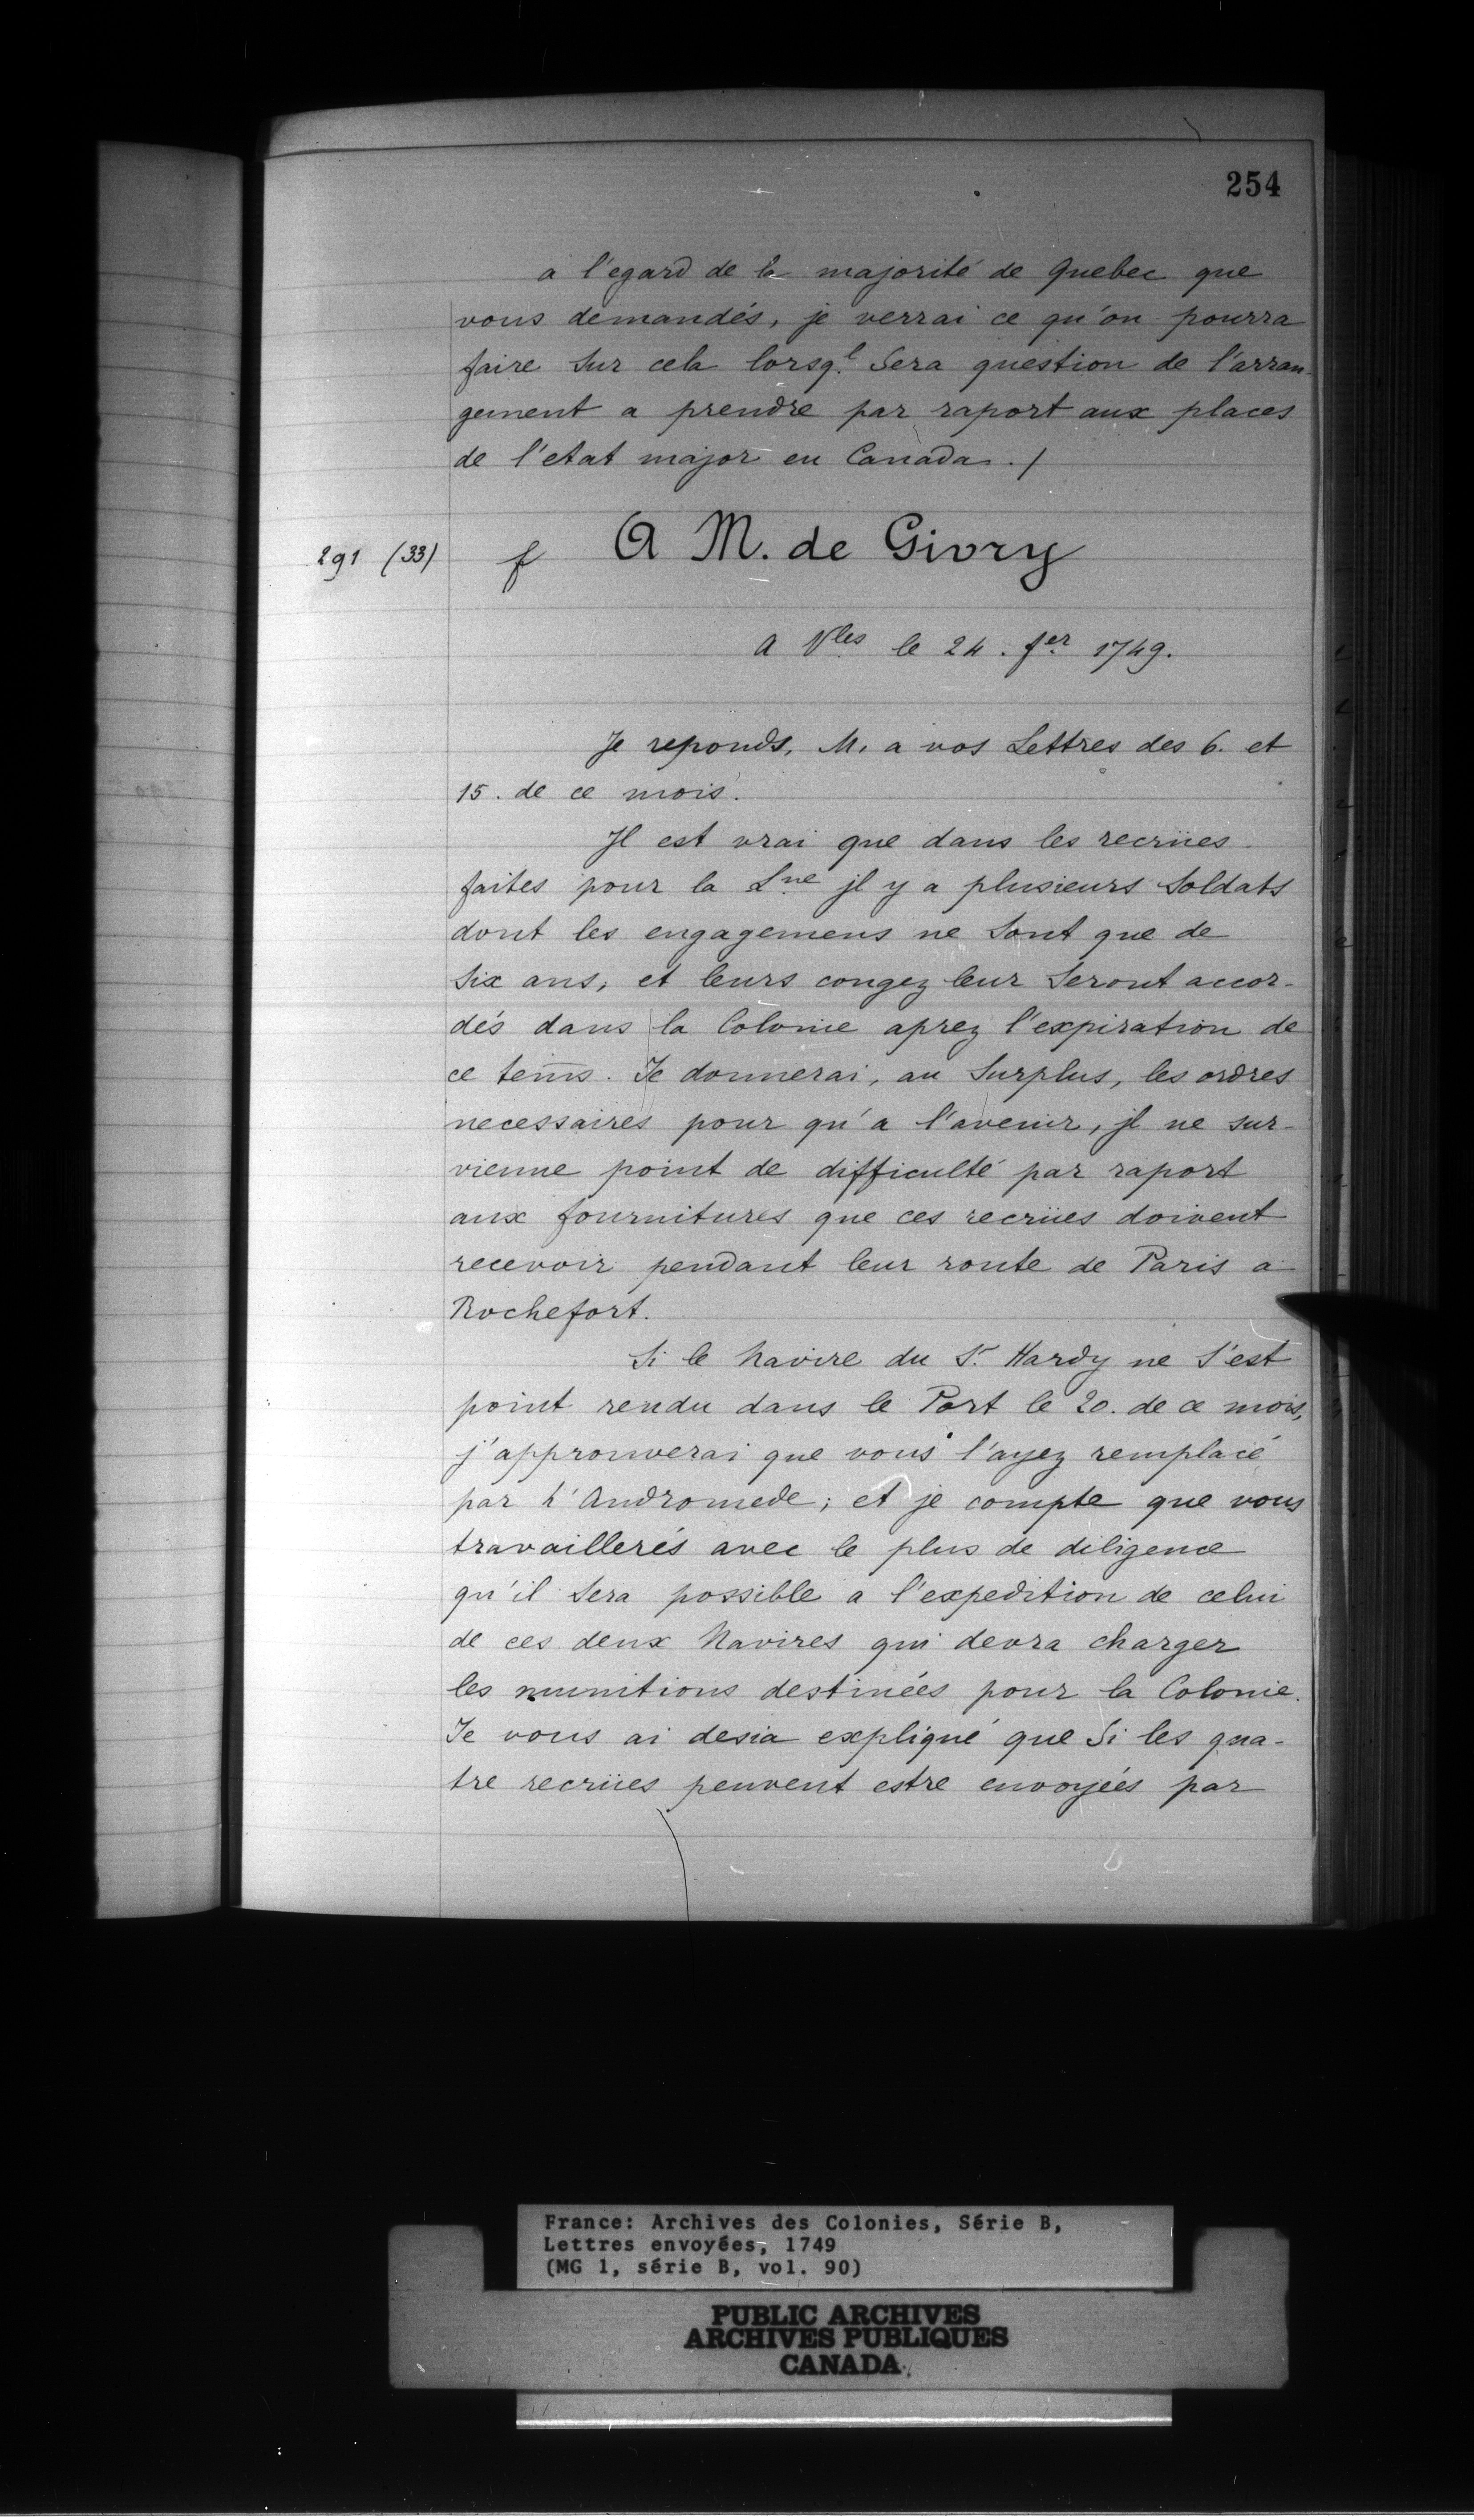 254
a l'egard de la majorité de Quebec que
vous demandés, je verrai ce qu'on pourra
faire sur cela lorsq.l Sera question de l'arran-
gement a prendre par raport aux places
de l'etat major en Canada ./
291 (33) f A M. de Givry
A Vles le 24. fer 1749.
Je reponds, M. a vos Lettres des 6. et
15. de ce mois.
Jl est vrai que dans les recrües
faites pour la Lne jl y a plusieurs Soldats
dont les engagemens ne Sont que de
Six ans, et leurs congez leur Seront accor-
dés dans la Colonie aprez l'expiration de
ce tems. Je donnerai, au Surplus, les ordres
necessaires pour qu'a l'avenir, jl ne sur-
vienne point de difficulté par raport
aux fournitures que ces recrües doivent
recevoir pendant leur route de Paris a
Rochefort.
Si le Navire du Sr. Hardy ne S'est
point rendu dans le Port le 20. de ce mois,
j'approuverai que vous l'ayez remplacé
par L'Andromede; et je compte que vous
travaillerés avec le plus de diligence
qu'il Sera possible a l'expedition de celui
de ces deux Navires qui devra charger
les munitions destinées pour la Colonie.
Je vous ai desia expliqué que Si les qua-
tre recrües peuvent estre envoyées par
France: Archives des Colonies, Série B,
Lettres envoyées, 1749
(MG 1, série B, vol. 90)
PUBLIC ARCHIVES
ARCHIVES PUBLIQUES
CANADA